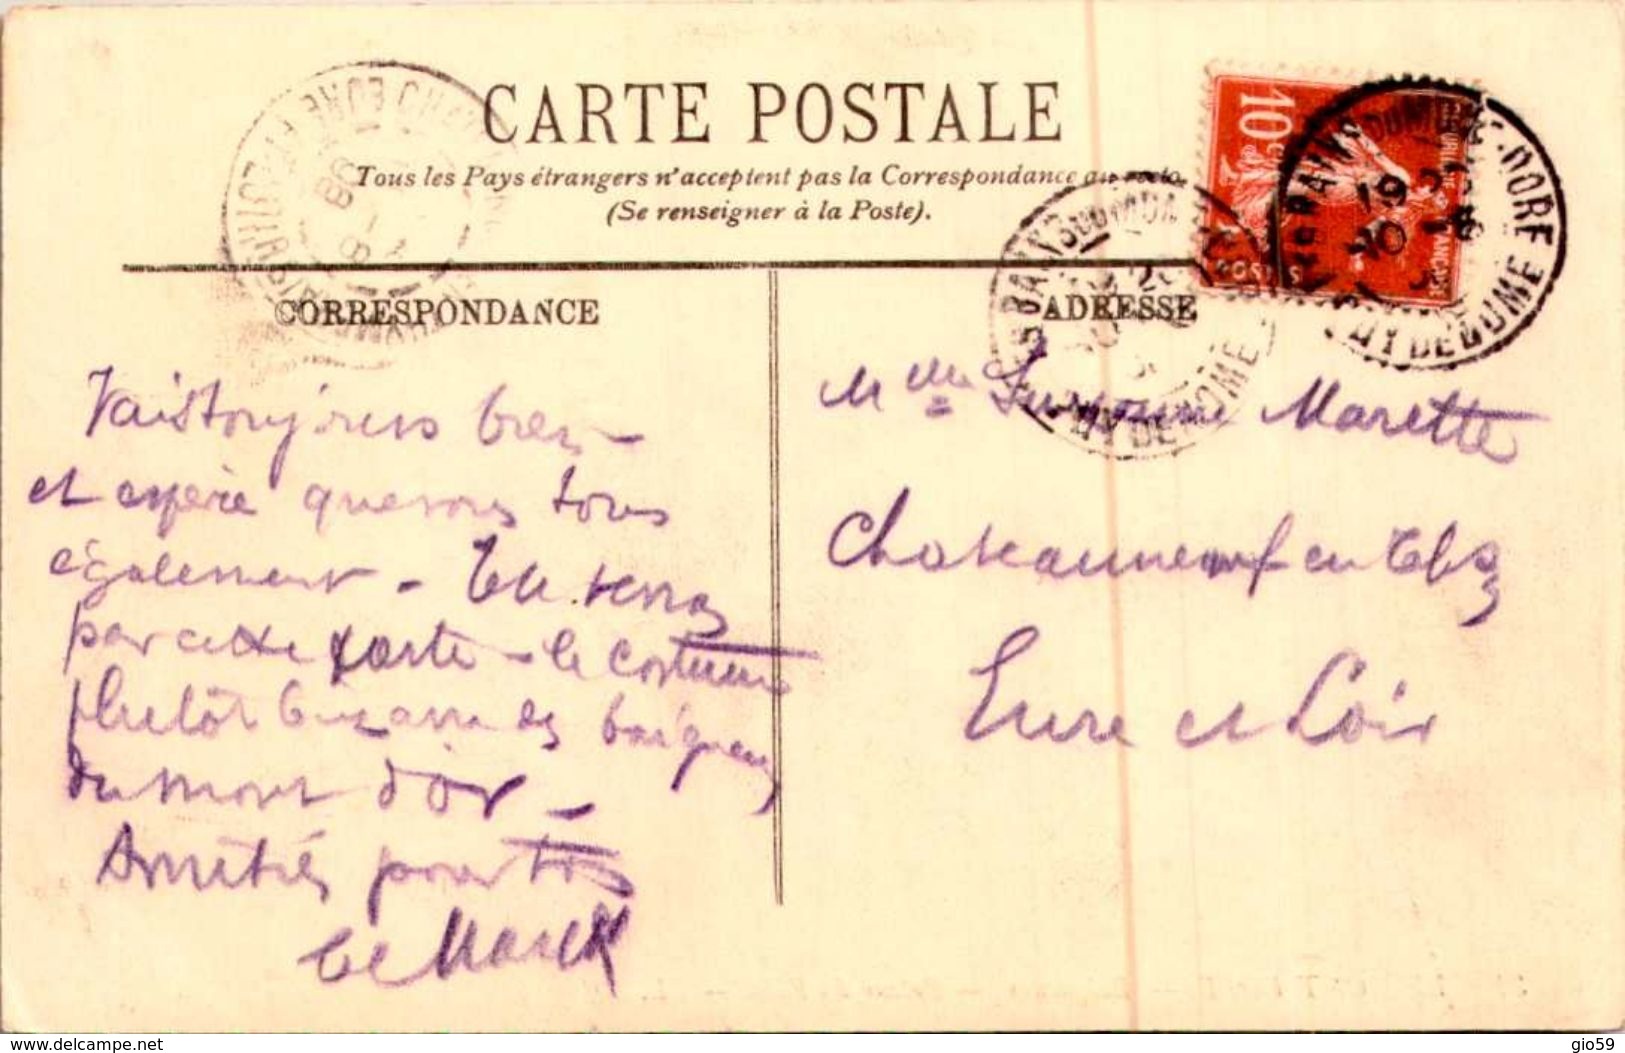 CARTE POSTALE
Tous les Pays étrangers n'acceptent pas la Correspondance au recto
(Se renseigner à la Poste).
CORRESPONDANCE
Vais toujours bien –
et espère que vous tous
également – Tu verras
par cette carte – le costume
plutôt bizarre des baigneurs
du Mont d'or –
Amitiés pour tous
ADRESSE
Melle Suzanne Marette
Chateauneuf en
Eure et Loir
10c
POSTES
PUY DE DOME
19
10 -8
PUY DE DOME
08
www.delcampe.net
gio59